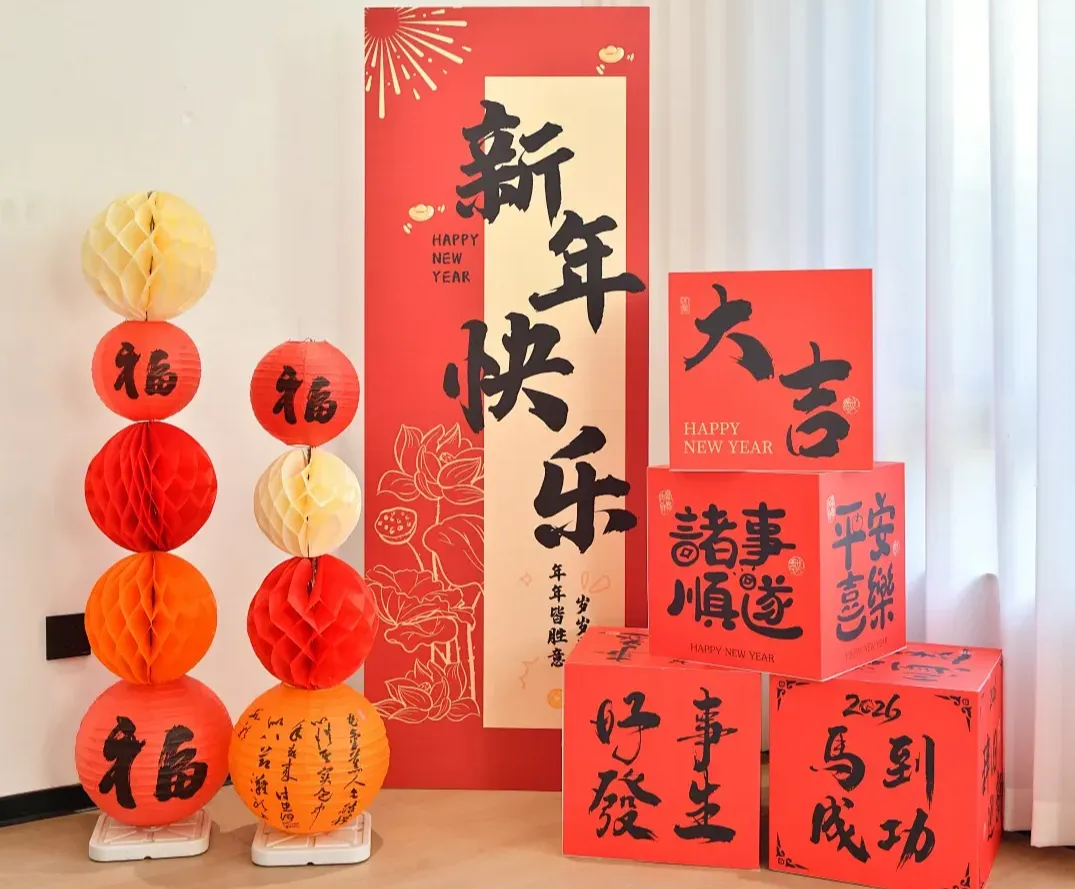 新年快乐
HAPPY
NEW
YEAR
年年皆胜意
岁岁
福
福
福
大吉
HAPPY
NEW YEAR
諸事
順遂
HAPPY NEW YEAR
平安
喜樂
HAPPY NEW YEAR
好事
發生
2026
馬到
成功